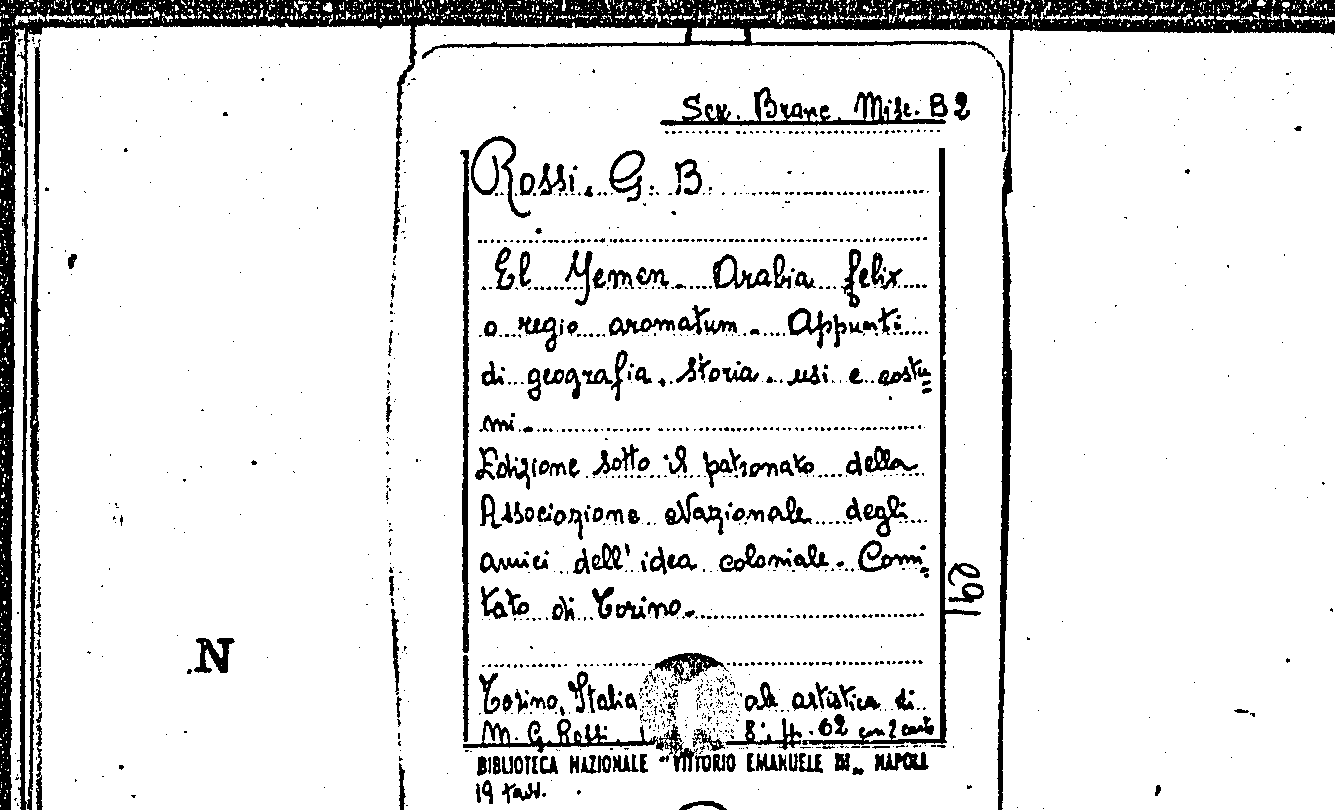 Scr. Branc. Misc. B 2
Rossi. G. B.
El Yemen. Arabia felix
o regio aromatum. Appunti
di geografia. storia. usi e costu=
mi.
Edizione sotto il patronato della
Associazione Nazionale degli
amici dell'idea coloniale. Comi=
tato di Torino.
Torino, Italia artistica di
M. G. Rossi 8: pp. 62 con 2 carte
BIBLIOTECA NAZIONALE "VITTORIO EMANUELE III" NAPOLI
19 tav.
N